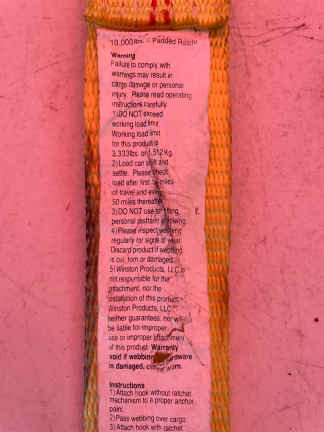 10,000lbs. - Padded Ratchet
Warning
Failure to comply with
warnings may result in
cargo damage or personal
injury. Please read operating
instructions carefully.
1) DO NOT exceed
working load limit.
Working load limit
for this product is
3,333lbs. or 1,512 Kg.
2) Load can shift and
settle. Please check
load after first miles
of travel and every
50 miles thereafter.
3) DO NOT use for lifting,
personal restraint or towing.
4) Please inspect webbing
regularly for signs of wear.
Discard product if webbing
is cut, torn or damaged.
5) Winston Products, LLC is
not responsible for the
attachment, nor the
installation of this product.
Winston Products, LLC
neither guarantees, nor will
be liable for improper
use or improper attachment
of this product. Warranty
void if webbing hardware
is damaged, cut worn.
Instructions
1) Attach hook without ratchet
mechanism to a proper anchor
point.
2) Pass webbing over cargo.
3) Attach hook with ratchet